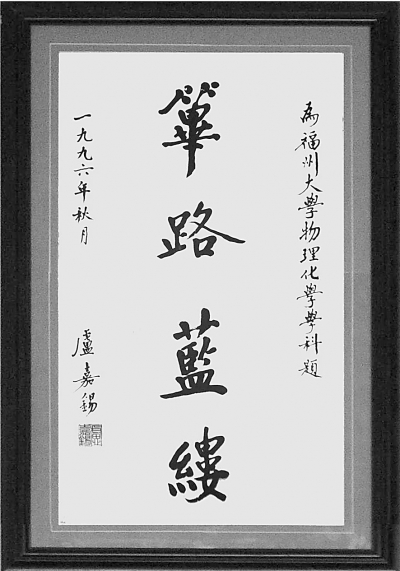 為福州大學物理化學學科題
篳路藍縷
一九九六年秋月
盧嘉錫